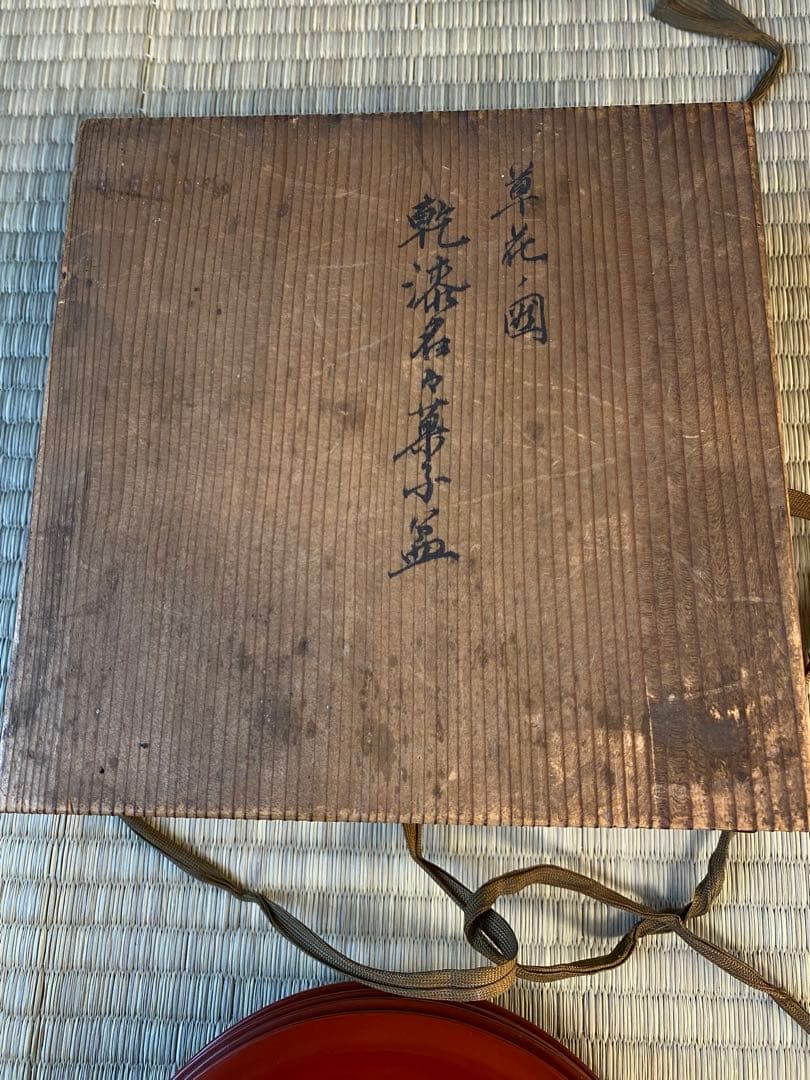 草花ノ図
乾漆名々菓子盆